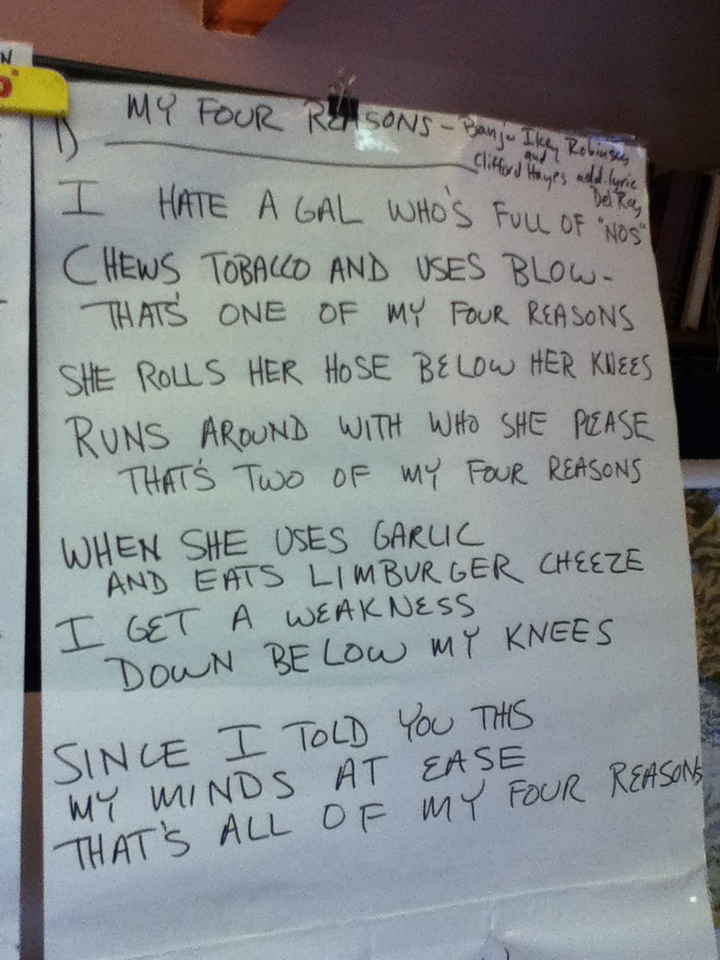 N
MY FOUR REASONS - Banjo Ikey Robinson
and
Clifford Hayes add. lyric
Del Rey
1)
I HATE A GAL WHO'S FULL OF "NOS"
CHEWS TOBACCO AND USES BLOW-
THAT'S ONE OF MY FOUR REASONS
SHE ROLLS HER HOSE BELOW HER KNEES
RUNS AROUND WITH WHO SHE PLEASE
THAT'S TWO OF MY FOUR REASONS
WHEN SHE USES GARLIC
AND EATS LIMBURGER CHEEZE
I GET A WEAKNESS
DOWN BELOW MY KNEES
SINCE I TOLD YOU THIS
MY MINDS AT EASE
THAT'S ALL OF MY FOUR REASONS